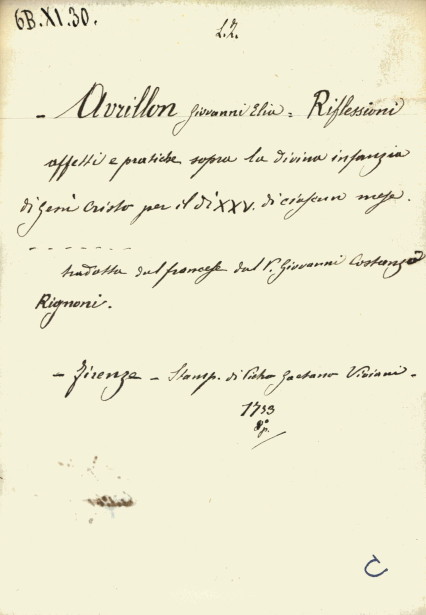 6B.XI.30.
L.Z.
- Avrillon Giovanni Elia = Riflessioni
affetti e pratiche sopra la divina infanzia
di Gesù Cristo per il dì XXV. di ciascun mese.
tradotta dal francese dal P. Giovanni Costanzo
Rignoni.
- Firenze - Stamp. di Pietro Gaetano Viviani -
1733
8°
C